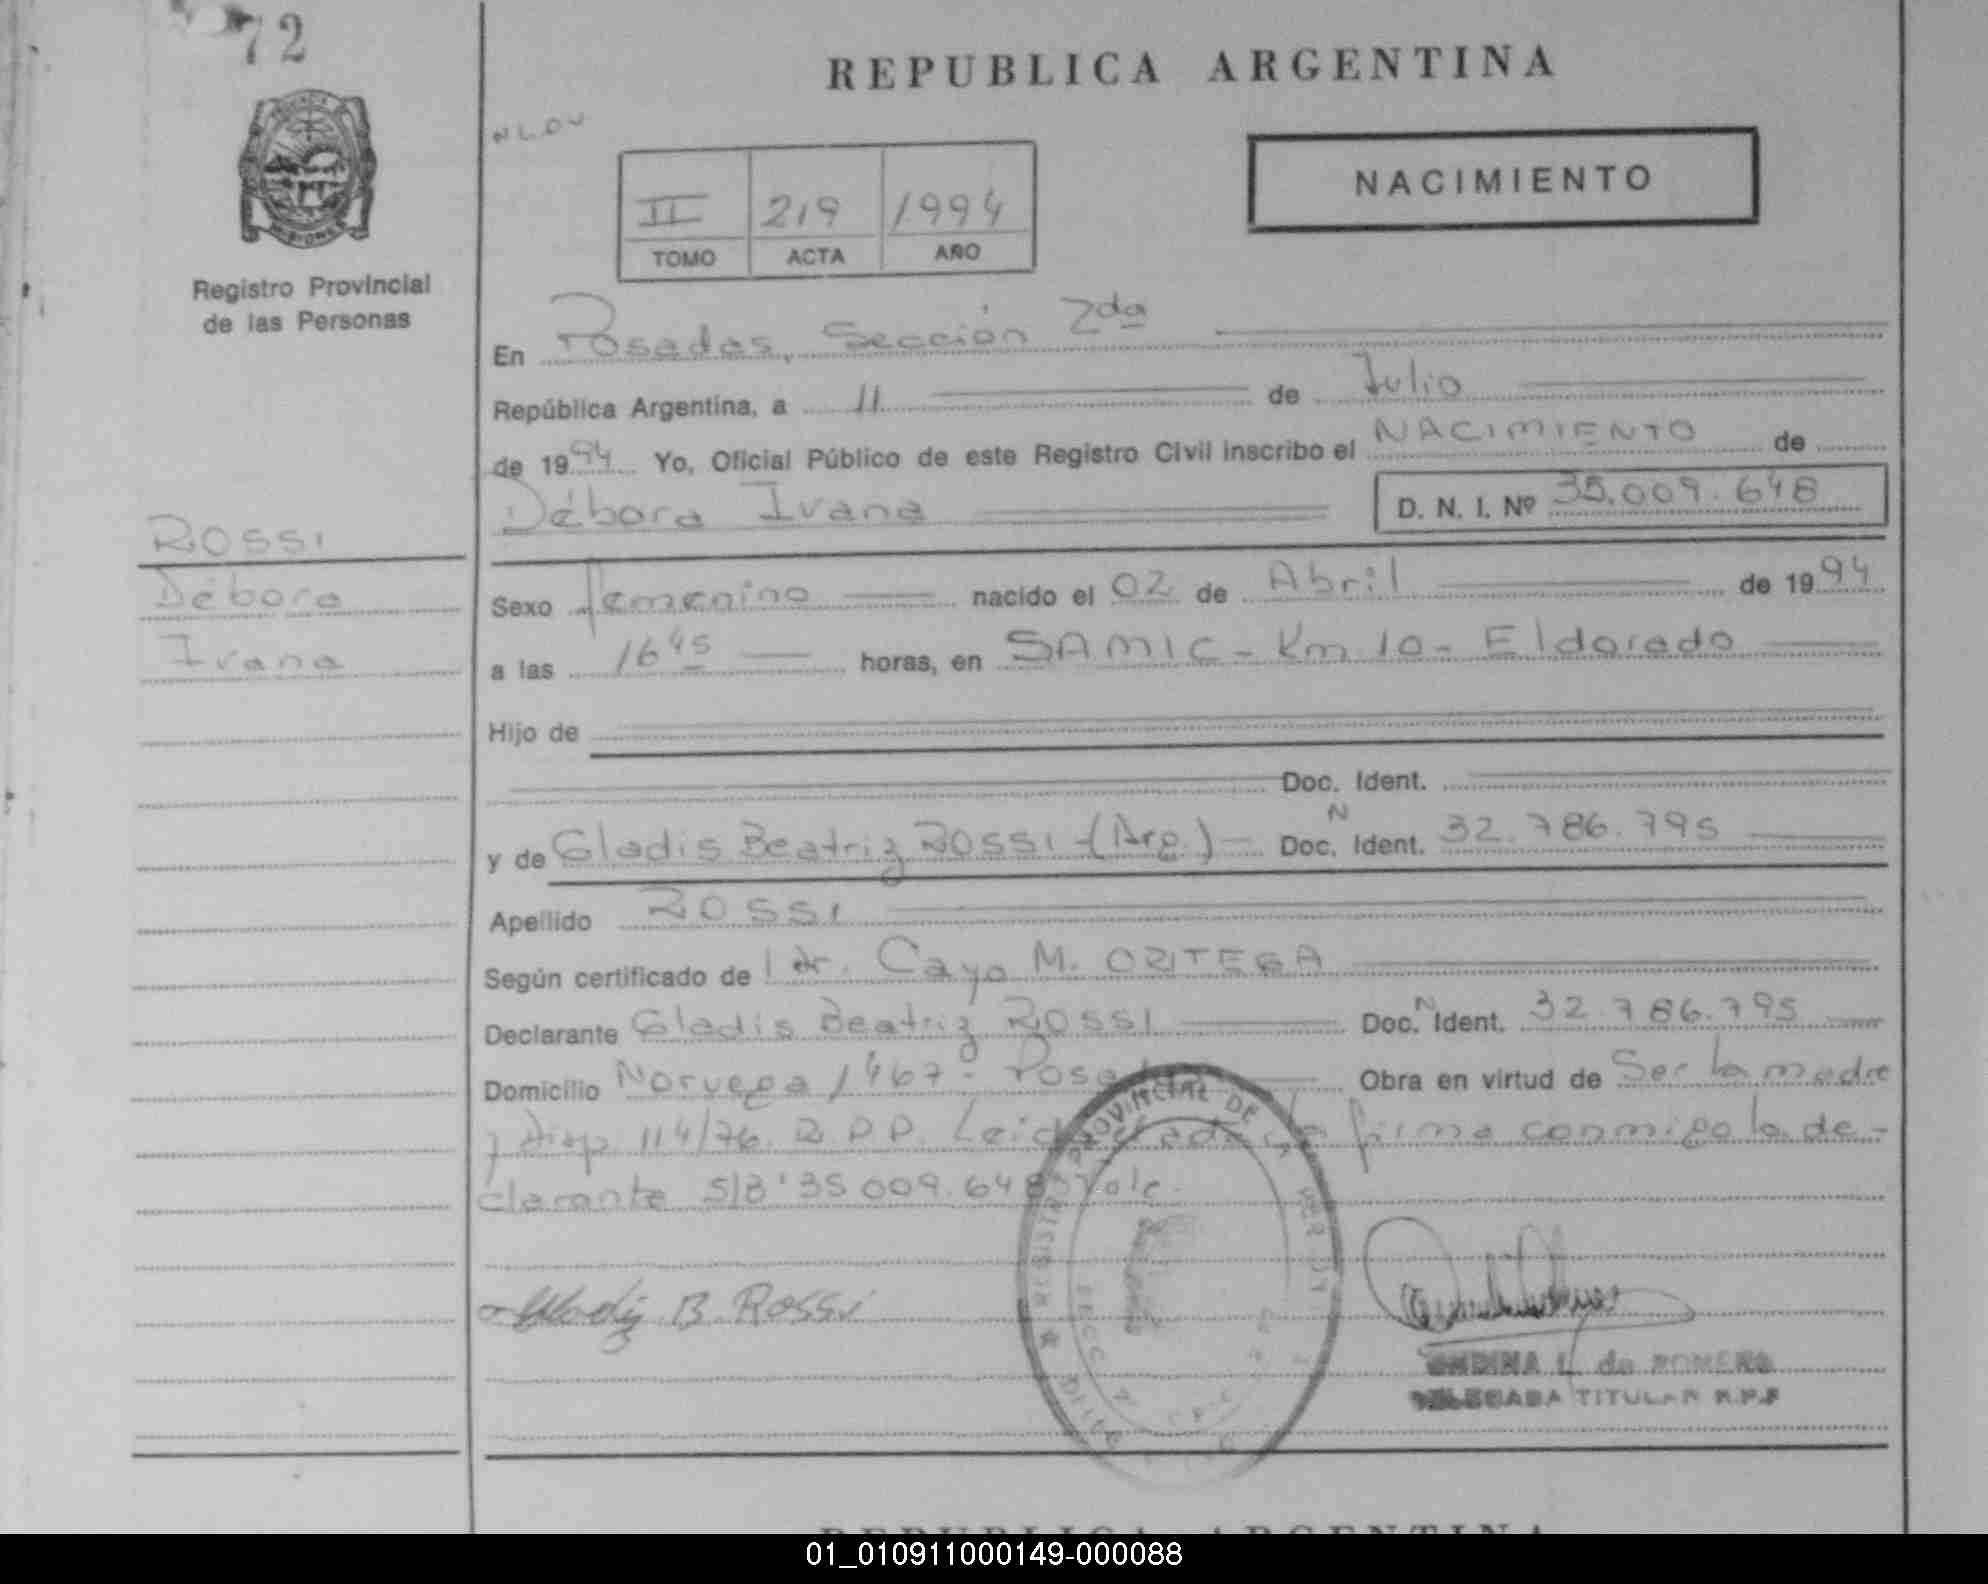 72
REPUBLICA ARGENTINA
NACIMIENTO
II 219 1994
TOMO ACTA AÑO
MISIONES
Registro Provincial
de las Personas
En Posadas, Sección 2da
República Argentina, a 11 de Julio
de 1994 Yo, Oficial Público de este Registro Civil inscribo el NACIMIENTO de
Débora Ivana D. N. I. Nº 35.009.648
ROSSI
Débora
Ivana
Sexo femenino nacido el 02 de Abril de 1994
a las 16 45 horas, en SAMIC - Km 10 - Eldorado
Hijo de
Doc. Ident.
y de Gladis Beatriz ROSSI - (Arg.) - Doc. N Ident. 32.786.795
Apellido ROSSI
Según certificado de dr. Cayo M. ORTEGA
Declarante Gladis Beatriz ROSSI Doc. N Ident. 32.786.795
Domicilio Norvega 1467 - Posadas Obra en virtud de Ser la madre
y Disp. 114/76. R.P.P. Leida el acta la firma conmigo la de-
clarante S/B "35.009.648" Vale.
B. Rossi
PROVINCIAL DE
de ROMERO
DELEGADA TITULAR R.P.P
REPUBLICA ARGENTINA
01_010911000149-000088